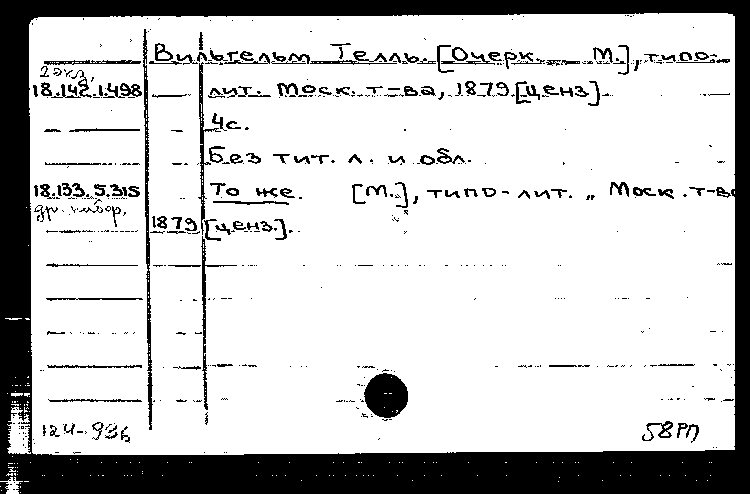 Вильгельм Телль. [Очерк. М.], типо-
2 экз.
18.142.1.498 лит. Моск. т-ва, 1879 [ценз].
4с.
Без тит. л. и обл.
18.133.5.315 То же. [М.], типо-лит. „ Моск. т-ва
др. набор.
1879 [ценз.].
124-936 58РП